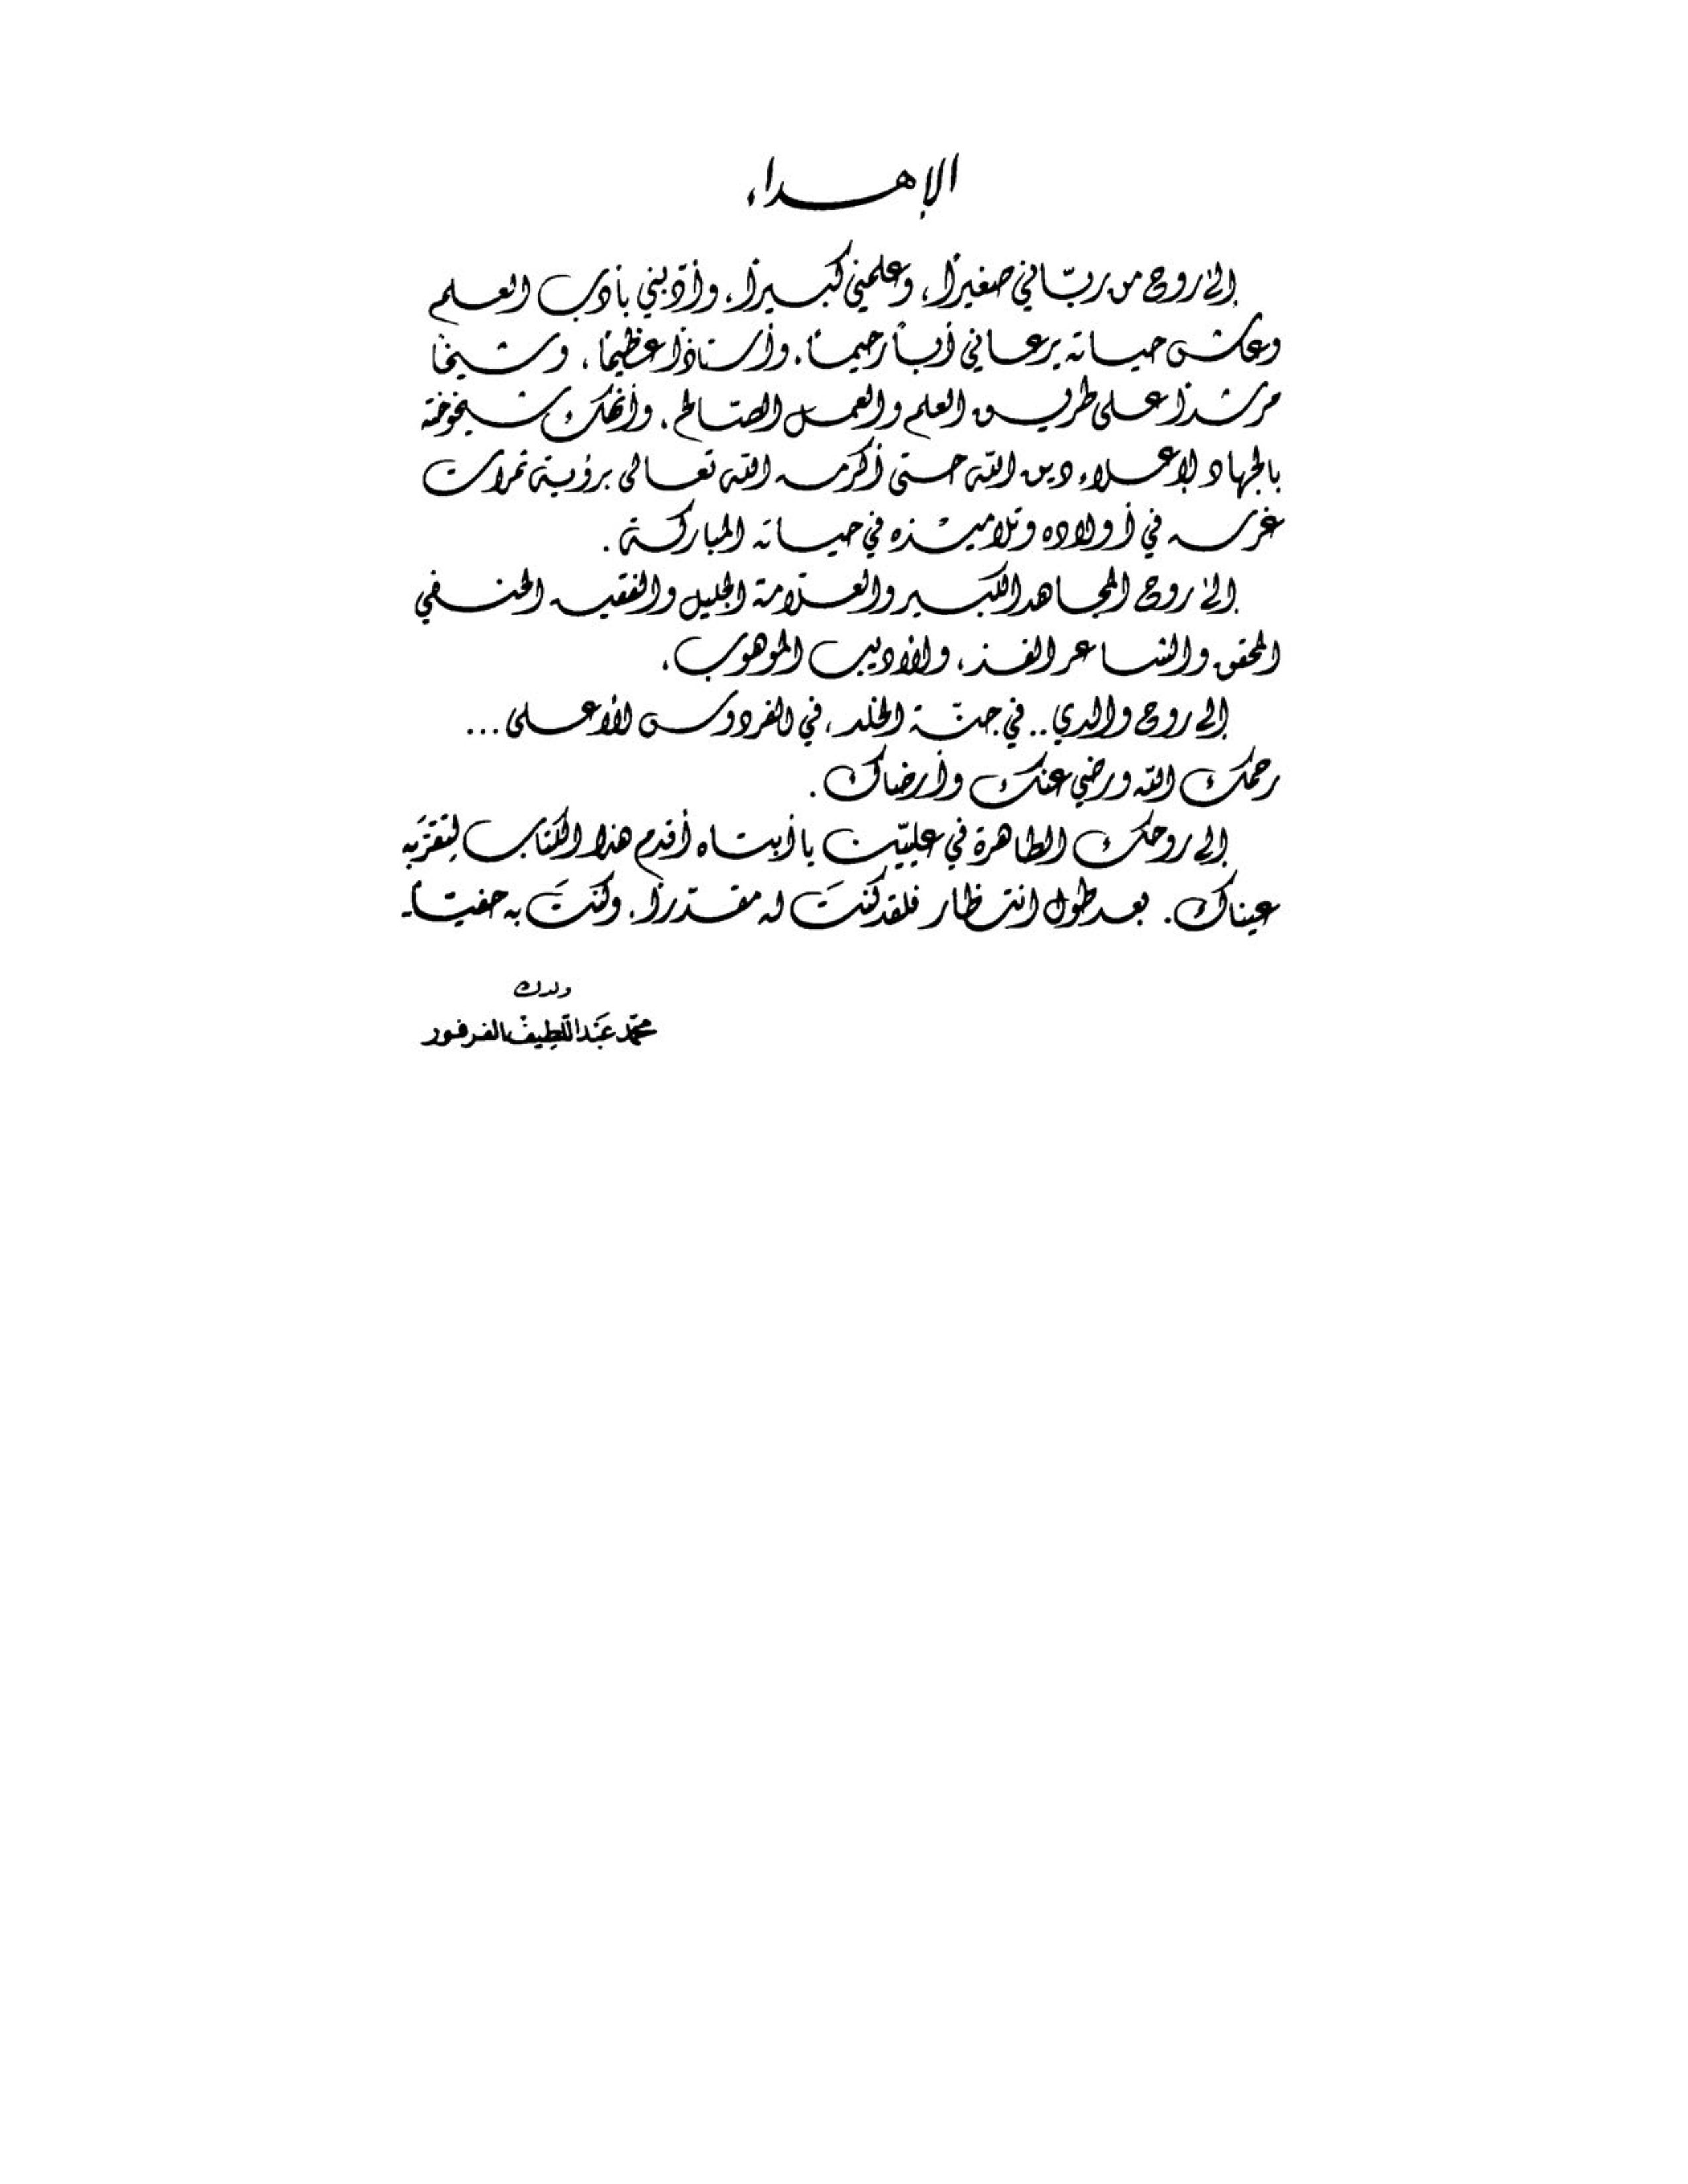 الإهداء
إلى روح من ربّاني صغيراً، وعلمني كبيراً، وأدّبني بأدب العلم
وعاش حياته يرعاني أباً رحيماً، وأستاذاً عظيماً، وشيخاً
مرشداً على طريق العلم والعمل الصّالح، وأنهك شيخوخته
بالجهاد لإعلاء دين اللّه حتى أكرمه اللّه تعالى برؤية ثمرات
غرسه في أولاده وتلاميذه في حياته المباركة.
إلى روح المجاهد الكبير والعلّامة الجليل والفقيه الحنفي
المحقق والشاعر الفذ، والأديب الموهوب،
إلى روح والدي.. في جنّة الخلد، في الفردوس الأعلى...
رحمك اللّه ورضي عنك وأرضاك.
إلى روحك الطاهرة في علييّن يا أبتاه أقدم هذا الكتاب لِتقرَّ به
عيناك. بعد طول انتظار فلقد كنتَ له مقدّراً، وكنتَ به حفيّاً.
ولدك
محمّد عَبْد اللّطيف الفرفور